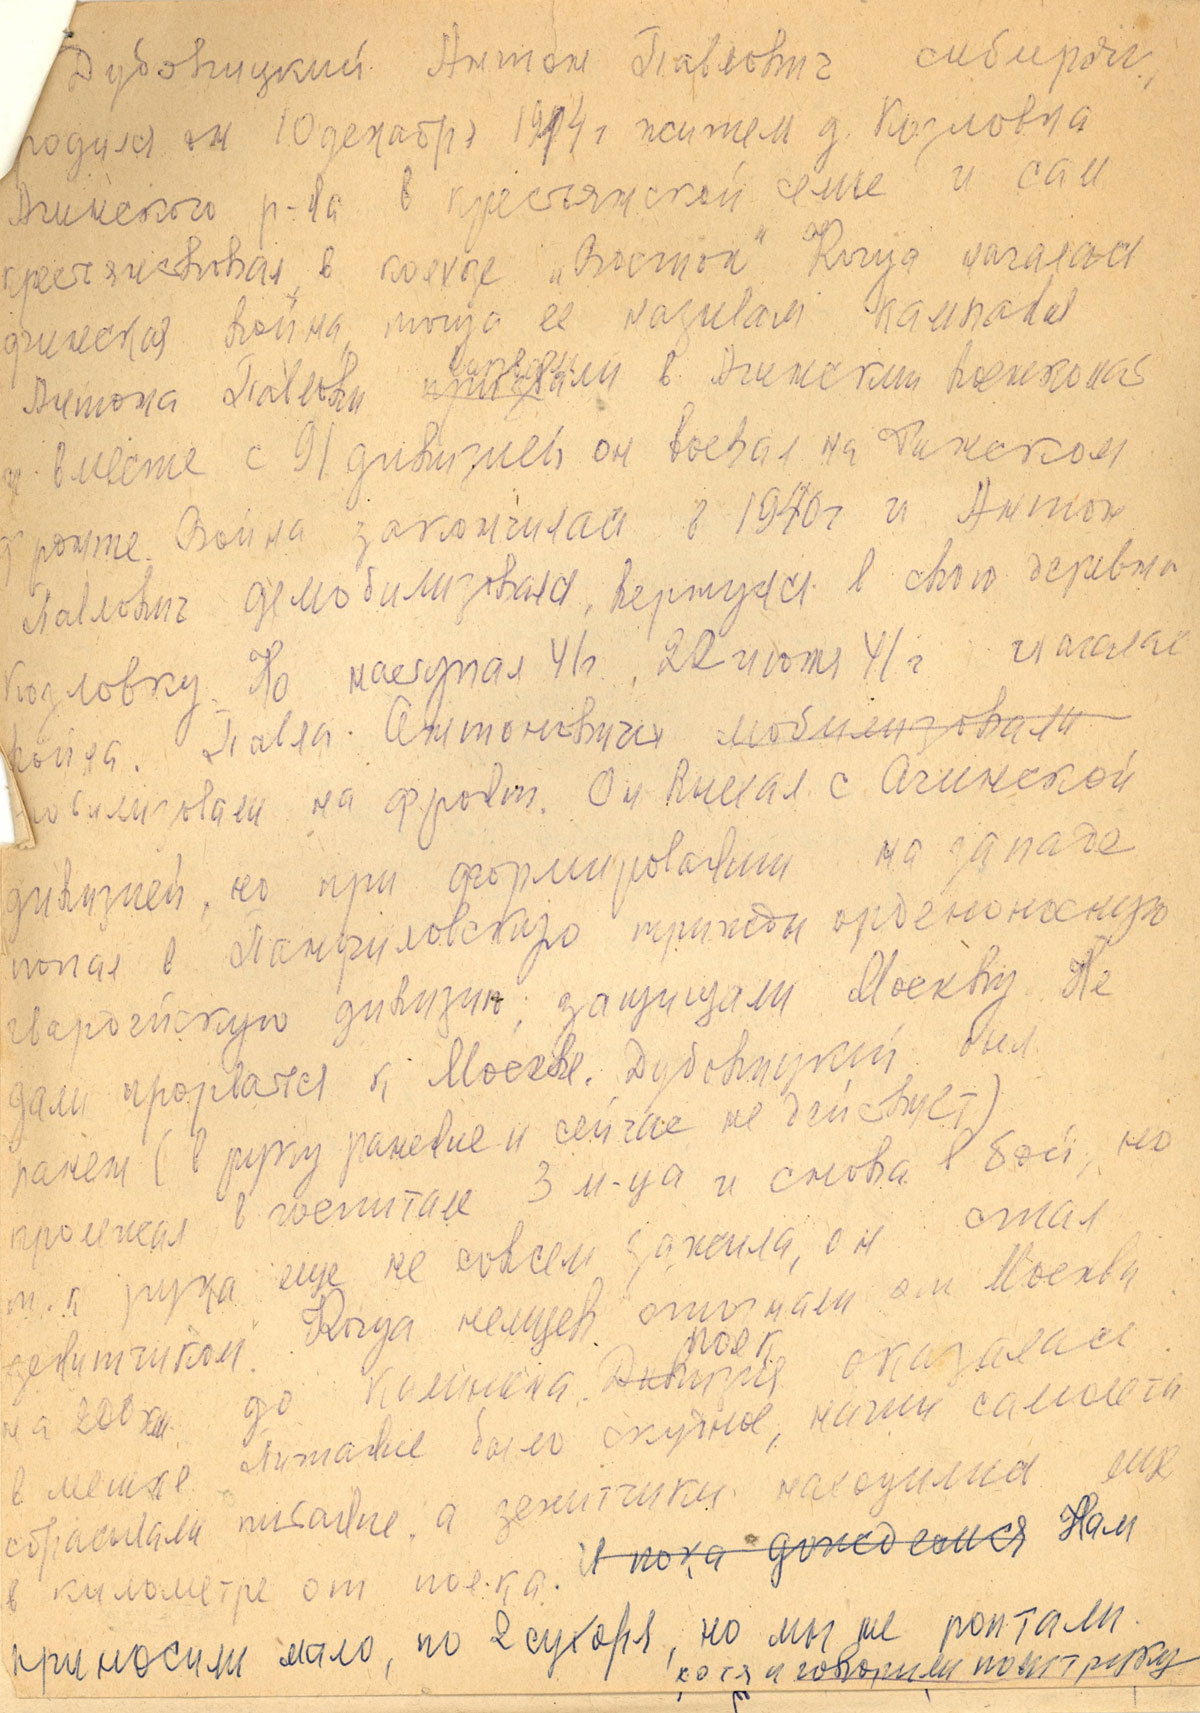 Дубовицкий Антон Павлович сибиряк,
родился он 10 декабря 1914 г жителем д. Козловка
Ачинского р-на в крестьянской семье и сам
крестьянствовал в колхозе „Восток" Когда началася
финская война, тогда ее называли кампания
Антона Павлови призвали в Ачинский военкомат
и вместе с 91 дивизией он воевал на Финском
фронте. Война закончилась в 1940 г и Антон
Павлович демобилизовался, вернулся в свою деревню
Козловку. Но наступал 41 г. 22 июня 41 г началас
война. Павла Антоновича мобилизовали
мобилизовали на фронт. Он выехал с Ачинской
дивизией, но при формировании на западе
попал в Панфиловскую трижды орденоносную
гвардейскую дивизию, защищали Москву. Не
дали прорватся к Москве. Дубовицкий был
ранен (в руку ранение и сейчас не действует)
пролежал в госпитале 3 м-ца и снова в бой, но
т.к рука еще не совсем зажила, он стал
зенитчиком. Когда немцев отогнали от Москвы
на 200 км. до Калинина. Дивизия полк оказалася
в мешке Питание было скудное, наши самолета
сбрасывали питание, а зенитчики находился еще
в километре от полка. И пока дождемися Нам
приносили мало, по 2 сухаря, но мы не роптали
хотя и говорили по